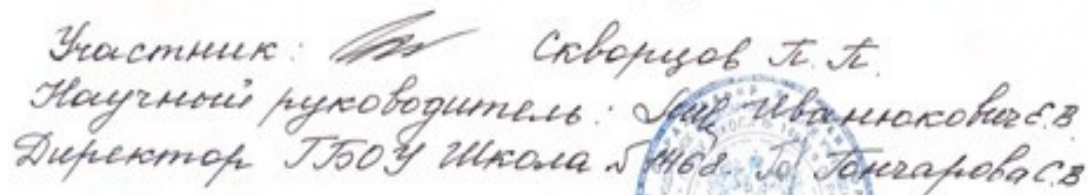 Участник: Скворцов П. П.
Научный руководитель: Иванюкович Е.В.
Директор ГБОУ Школа № 1468 Гончарова С.В